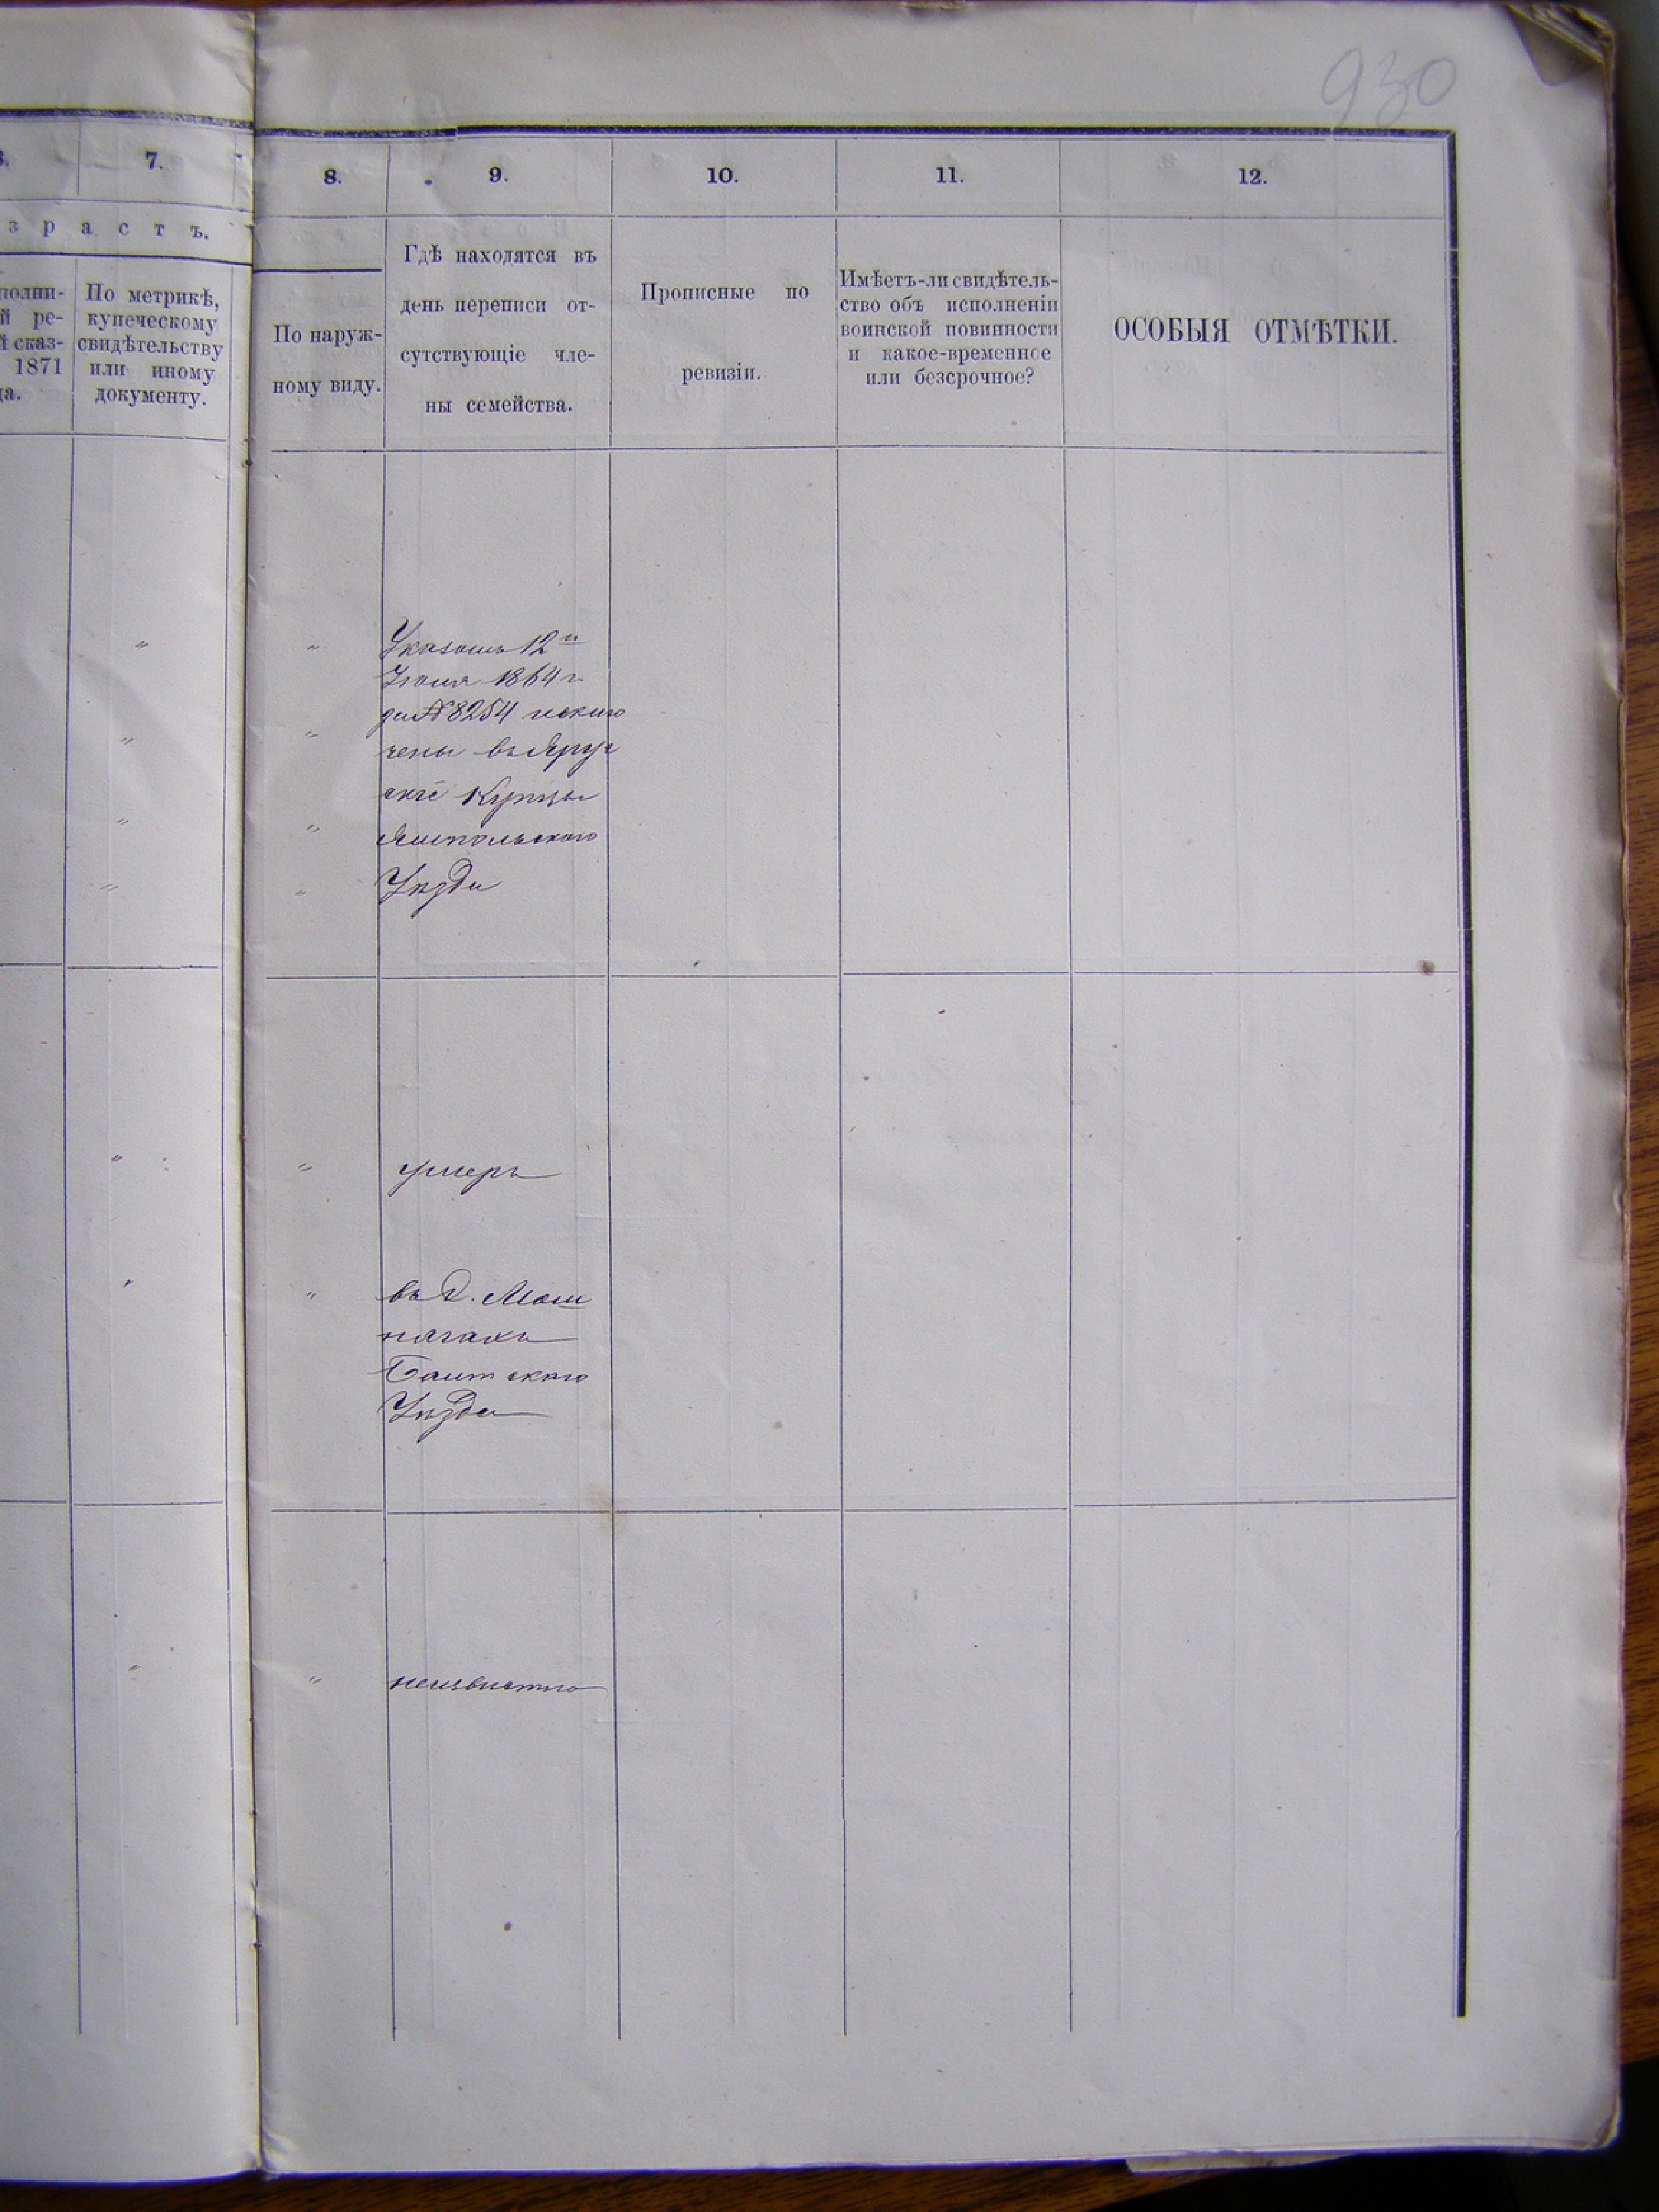 930
7.
8.
9.
10.
11.
12.
з р а с т ъ.
полни-
й ре-
й сказ-
1871
да.
По метрикѣ,
купеческому
свидѣтельству
или иному
документу.
По наруж-
ному виду.
Гдѣ находятся въ
день переписи от-
сутствующіе чле-
ны семейства.
Прописные по
ревизіи.
Имѣетъ-ли свидѣтель-
ство объ исполненіи
воинской повинности
и какое-временное
или безсрочное?
ОСОБЫЯ ОТМѢТКИ.
Указомъ 12го
Іюня 1864 г.
за № 8254 исклю
чены въ
купцы
Ямпольскаго
Уѣзда
умеръ
въ д.
Балтскаго
Уѣзда
неизвѣстно